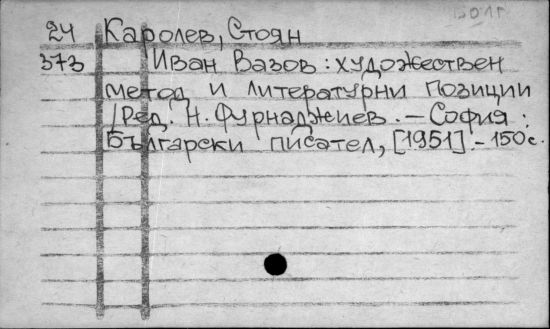 24 Каролев, Стоян
373 Иван Вазов : художествен
метод и литературни позиции
/Ред. Н. Фурнаджиев. — София :
Български писател, [1951]. - 150 с.